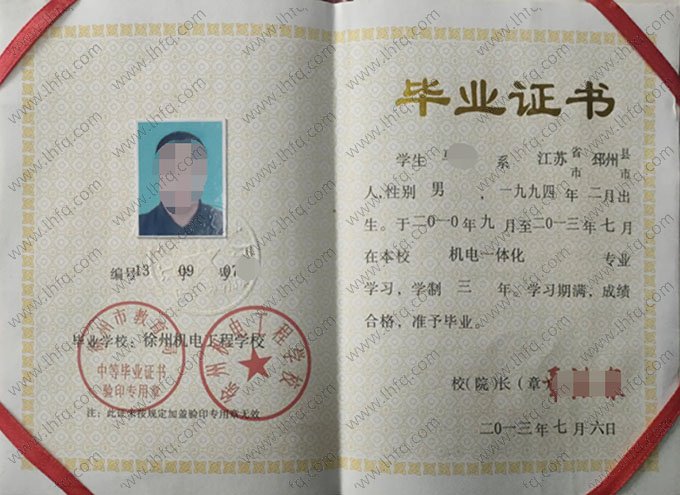 编号13 09 07
毕业学校：徐州机电工程学校
徐州市教育局
中等毕业证书
验印专用章
徐州机电工程学校
注：此证未按规定加盖验印专用章无效
毕业证书
学生 系 江苏省市 邳州县市
人，性别 男 ，一九九四年 二月出
生。于二〇一〇年九月至二〇一三年七月
在本校 机电一体化 专业
学习，学制 三 年。学习期满，成绩
合格，准予毕业。
校（院）长（章）
二〇一三年七月六日
www.lhfq.com